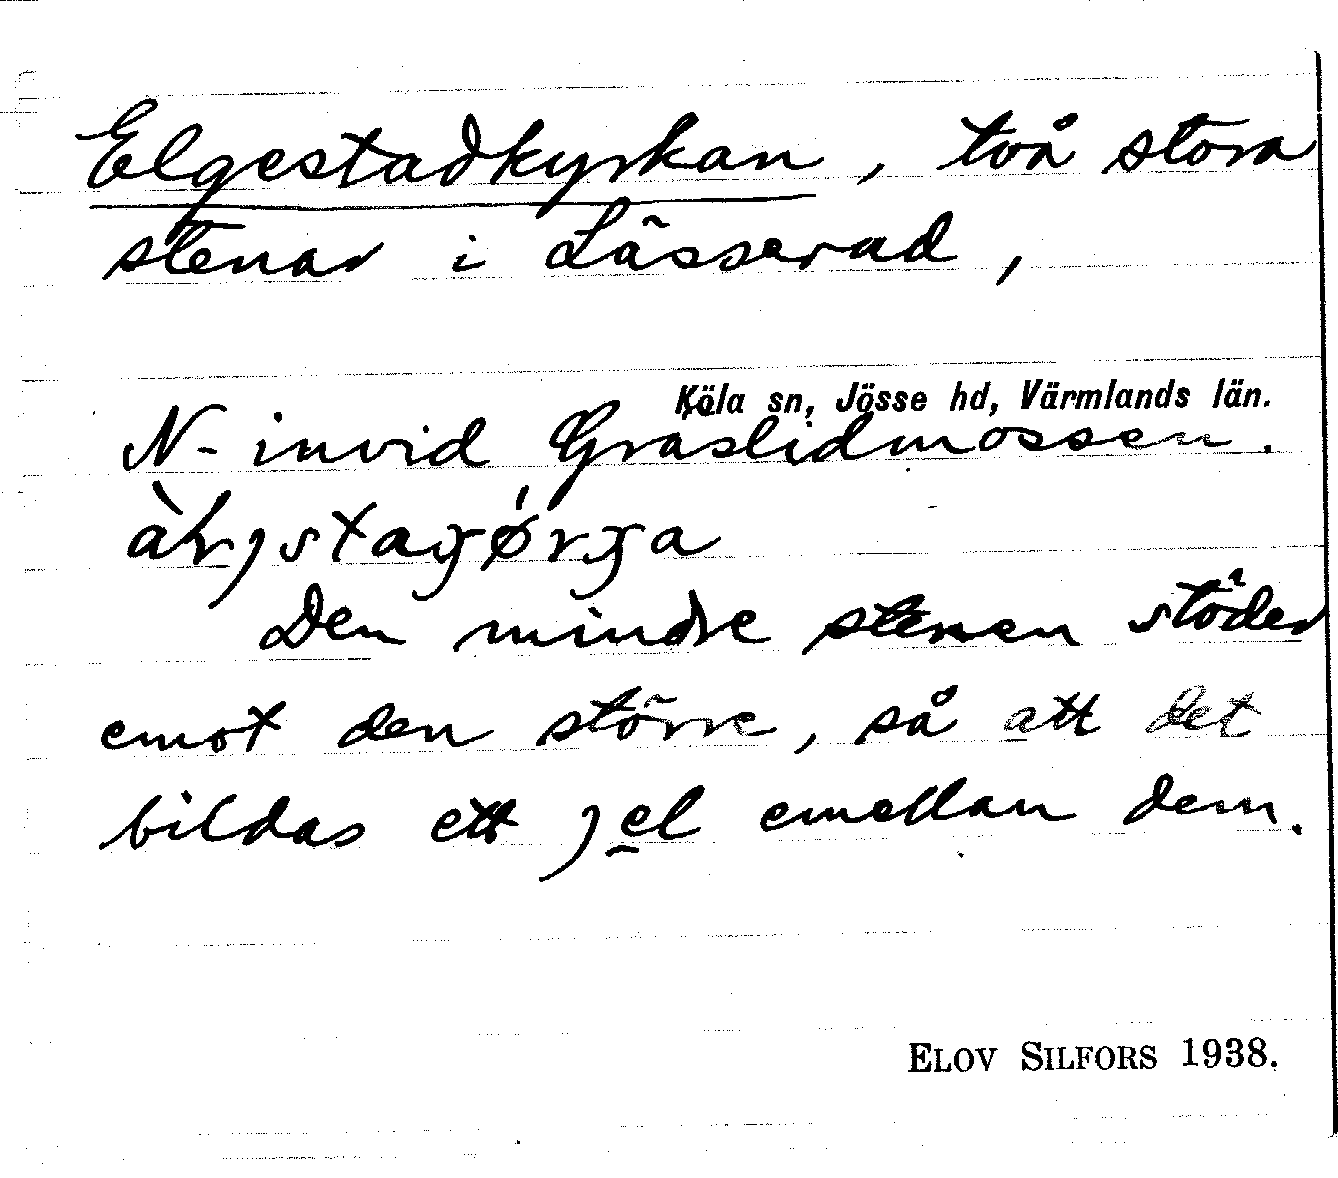 Elgestadkyrkan, två stora
stenar i Lässerud,
Köla sn, Jösse hd, Värmlands län.
N- invid Graslidmossen.
Den mindre stenen stöder
emot den större, så att det
bildas ett jel emellan dem.
ELOV SILFORS 1938.